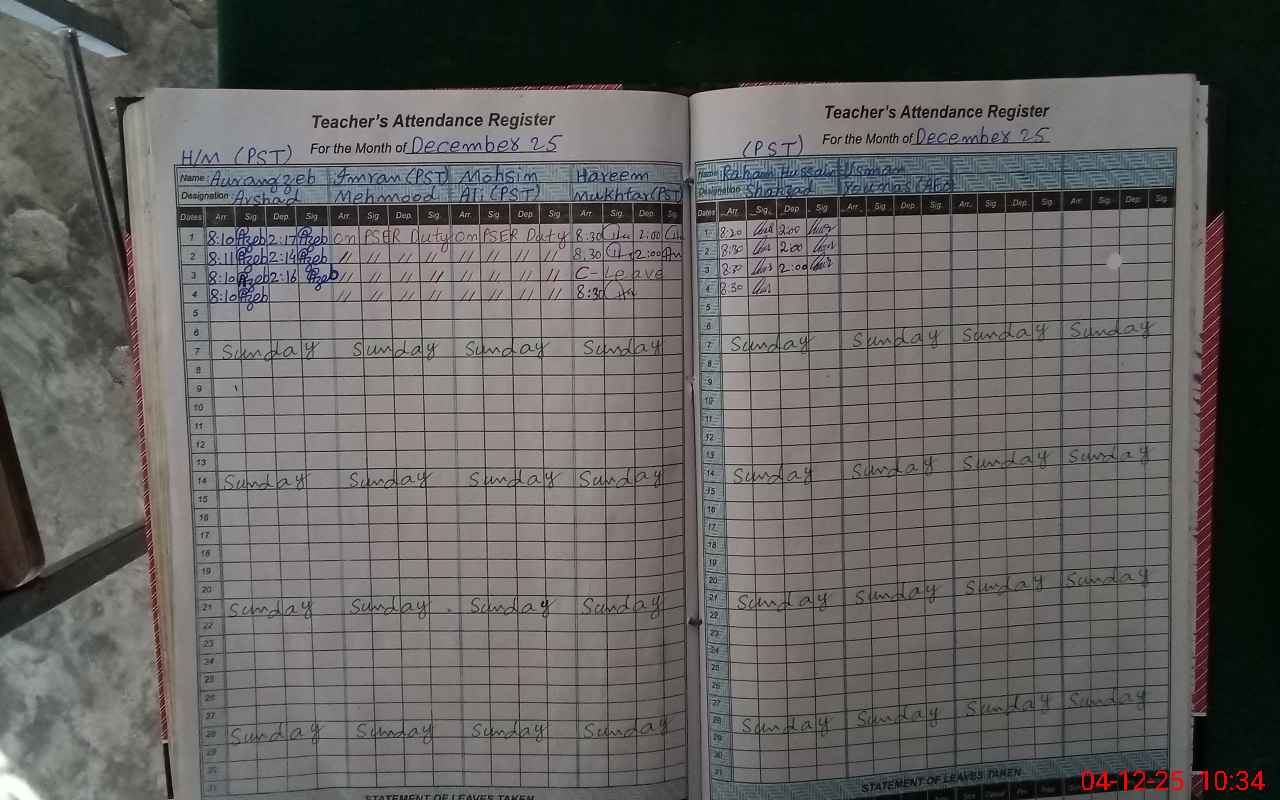 Teacher's Attendance Register
H/M (PST) For the Month of December 25
Name: Aurangzeb Imran (PST) Mohsim Hareem
Designation Arshad Mehmood Ali (PST) Mukhtar (PST)
Dates Arr. Sig. Dep. Sig. Arr. Sig. Dep. Sig. Arr. Sig. Dep. Sig. Arr. Sig. Dep. Sig.
1 8:10 Azeb 2:17 Azeb On PSER Duty On PSER Duty 8:30 2:00
2 8:11 Azeb 2:14 Azeb // // // // // // // // 8:30 2:00
3 8:10 Azeb 2:16 Azeb // // // // // // // // C-Leave
4 8:10 Azeb // // // // // // // // 8:30
5
6
7 Sunday Sunday Sunday Sunday
8
9
10
11
12
13
14 Sunday Sunday Sunday Sunday
15
16
17
18
19
20
21 Sunday Sunday Sunday Sunday
22
23
24
25
26
27
28 Sunday Sunday Sunday Sunday
29
30
31
STATEMENT OF LEAVES TAKEN
Teacher's Attendance Register
(PST) For the Month of December 25
Name: Hussain Usman
Designation Shahzad
Dates Arr. Sig. Dep. Sig. Arr. Sig. Dep. Sig. Arr. Sig. Dep. Sig. Arr. Sig. Dep. Sig.
1 8:20 2:00
2 8:30 2:00
3 2:00
4 8:30
5
6
7 Sunday Sunday Sunday Sunday
8
9
10
11
12
13
14 Sunday Sunday Sunday Sunday
15
16
17
18
19
20
21 Sunday Sunday Sunday Sunday
22
23
24
25
26
27
28 Sunday Sunday Sunday Sunday
29
30
31
STATEMENT OF LEAVES TAKEN
04-12-25 10:34